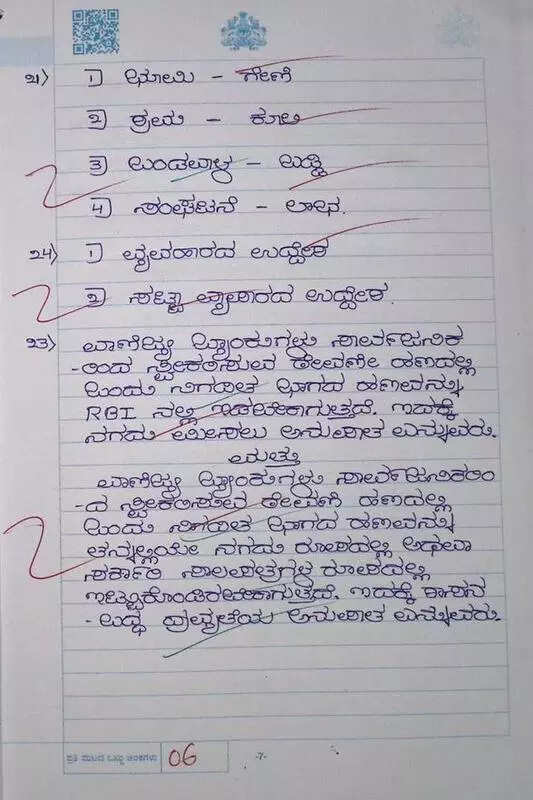 21) 1) ಭೂಮಿ - ಗೇಣಿ
2) ಶ್ರಮ - ಕೂಲಿ
3) ಬಂಡವಾಳ - ಬಡ್ಡಿ
4) ಸಂಘಟನೆ - ಲಾಭ.
24) 1) ವ್ಯವಹಾರದ ಉದ್ದೇಶ
2) ಸಟ್ಟಾ ವ್ಯಾಪಾರದ ಉದ್ದೇಶ.
23) ವಾಣಿಜ್ಯ ಬ್ಯಾಂಕುಗಳು ಸಾರ್ವಜನಿಕ
-ರಿಂದ ಸ್ವೀಕರಿಸುವ ಠೇವಣಿ ಹಣದಲ್ಲಿ
ಒಂದು ನಿಗದಿತ ಭಾಗದ ಹಣವನ್ನು
RBI ನಲ್ಲಿ ಇಡಬೇಕಾಗುತ್ತದೆ. ಇದಕ್ಕೆ
ನಗದು ಮೀಸಲು ಅನುಪಾತ ಎನ್ನುವರು.
ಮತ್ತು
ವಾಣಿಜ್ಯ ಬ್ಯಾಂಕುಗಳು ಸಾರ್ವಜನಿಕರಿಂ
-ದ ಸ್ವೀಕರಿಸುವ ಠೇವಣಿ ಹಣದಲ್ಲಿ
ಒಂದು ನಿಗದಿತ ಭಾಗದ ಹಣವನ್ನು
ತನ್ನಲ್ಲಿಯೇ ನಗದು ರೂಪದಲ್ಲಿ ಅಥವಾ
ಸರ್ಕಾರಿ ಸಾಲಪತ್ರಗಳ ರೂಪದಲ್ಲಿ
ಇಟ್ಟುಕೊಂಡಿರಬೇಕಾಗುತ್ತದೆ. ಇದಕ್ಕೆ ಶಾಸನ
-ಬದ್ಧ ದ್ರವ್ಯತೆಯ ಅನುಪಾತ ಎನ್ನುವರು.
ಪ್ರತಿ ಪುಟದ ಒಟ್ಟು ಅಂಕಗಳು 06 -7-